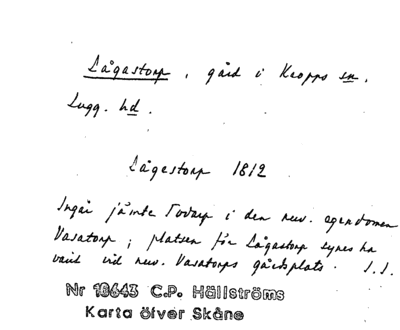 Lågastorp, gård i Kropps sn,
Lugg. hd.
Lågestorp 1812
Ingår jämte Todarp i den nuv. egendomen
Vasatorp; platsen för Lågastorp synes ha
varit vid nuv. Vasatorps gårdsplats. I.I.
Nr 10643 C.P. Hällströms
Karta öfver Skåne